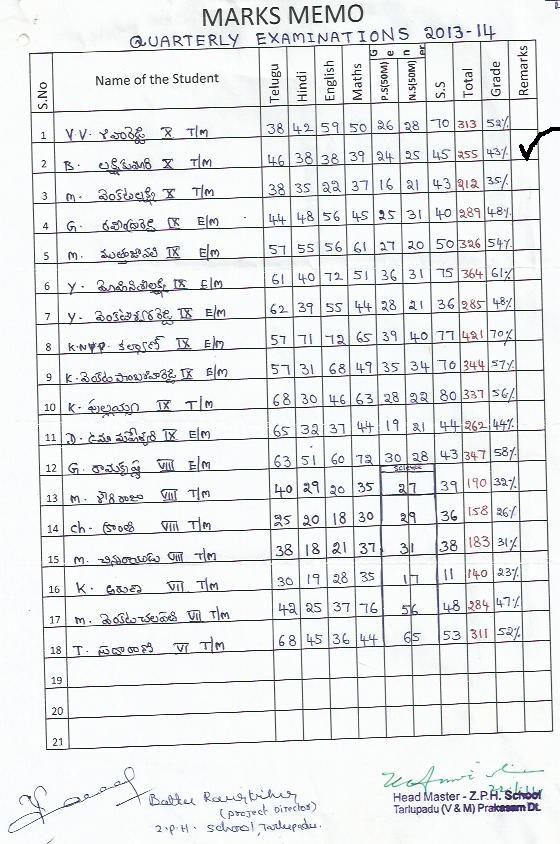 MARKS MEMO
QUARTERLY EXAMINATIONS 2013-14
S.No Name of the Student Telugu Hindi English Maths General P.S(50M) N.S(50M) S.S Total Grade Remarks
1 V.V. X T/M 38 42 59 50 26 28 70 313 52%
2 B. X T/M 46 38 38 39 24 25 45 255 43%
3 M. X T/M 38 35 22 37 16 21 43 212 35%
4 G. IX E/M 44 48 56 45 25 31 40 289 48%
5 M. IX E/M 57 55 56 61 27 20 50 326 54%
6 Y. IX E/M 61 40 72 51 36 31 75 364 61%
7 Y. IX E/M 62 39 55 44 28 21 36 285 48%
8 కళ్యాణి IX E/M 57 71 72 65 39 40 77 421 70%
9 K. IX E/M 57 31 68 49 35 34 70 344 57%
10 K. పుల్లయ్య IX T/M 68 30 46 63 28 22 80 337 56%
11 D. ఉమా మహేశ్వరి IX E/M 65 32 37 44 19 21 44 262 44%
12 G. రామకృష్ణ VIII E/M 63 51 60 72 30 28 43 347 58%
Science
13 M. VIII T/M 40 29 20 35 27 39 190 32%
14 Ch. క్రాంతి VIII T/M 25 20 18 30 29 36 158 26%
15 M. VIII T/M 38 18 21 37 31 38 183 31%
16 K. అరుణ VII T/M 30 19 28 35 17 11 140 23%
17 M. వెంకటాచలపతి VII T/M 42 25 37 76 56 48 284 47%
18 T. VI T/M 68 45 36 44 65 53 311 52%
19
20
21
(Project Director)
Z.P.H. School, Tarlupadu.
Head Master - Z.P.H. School
Tarlupadu (V & M) Prakasam Dt.